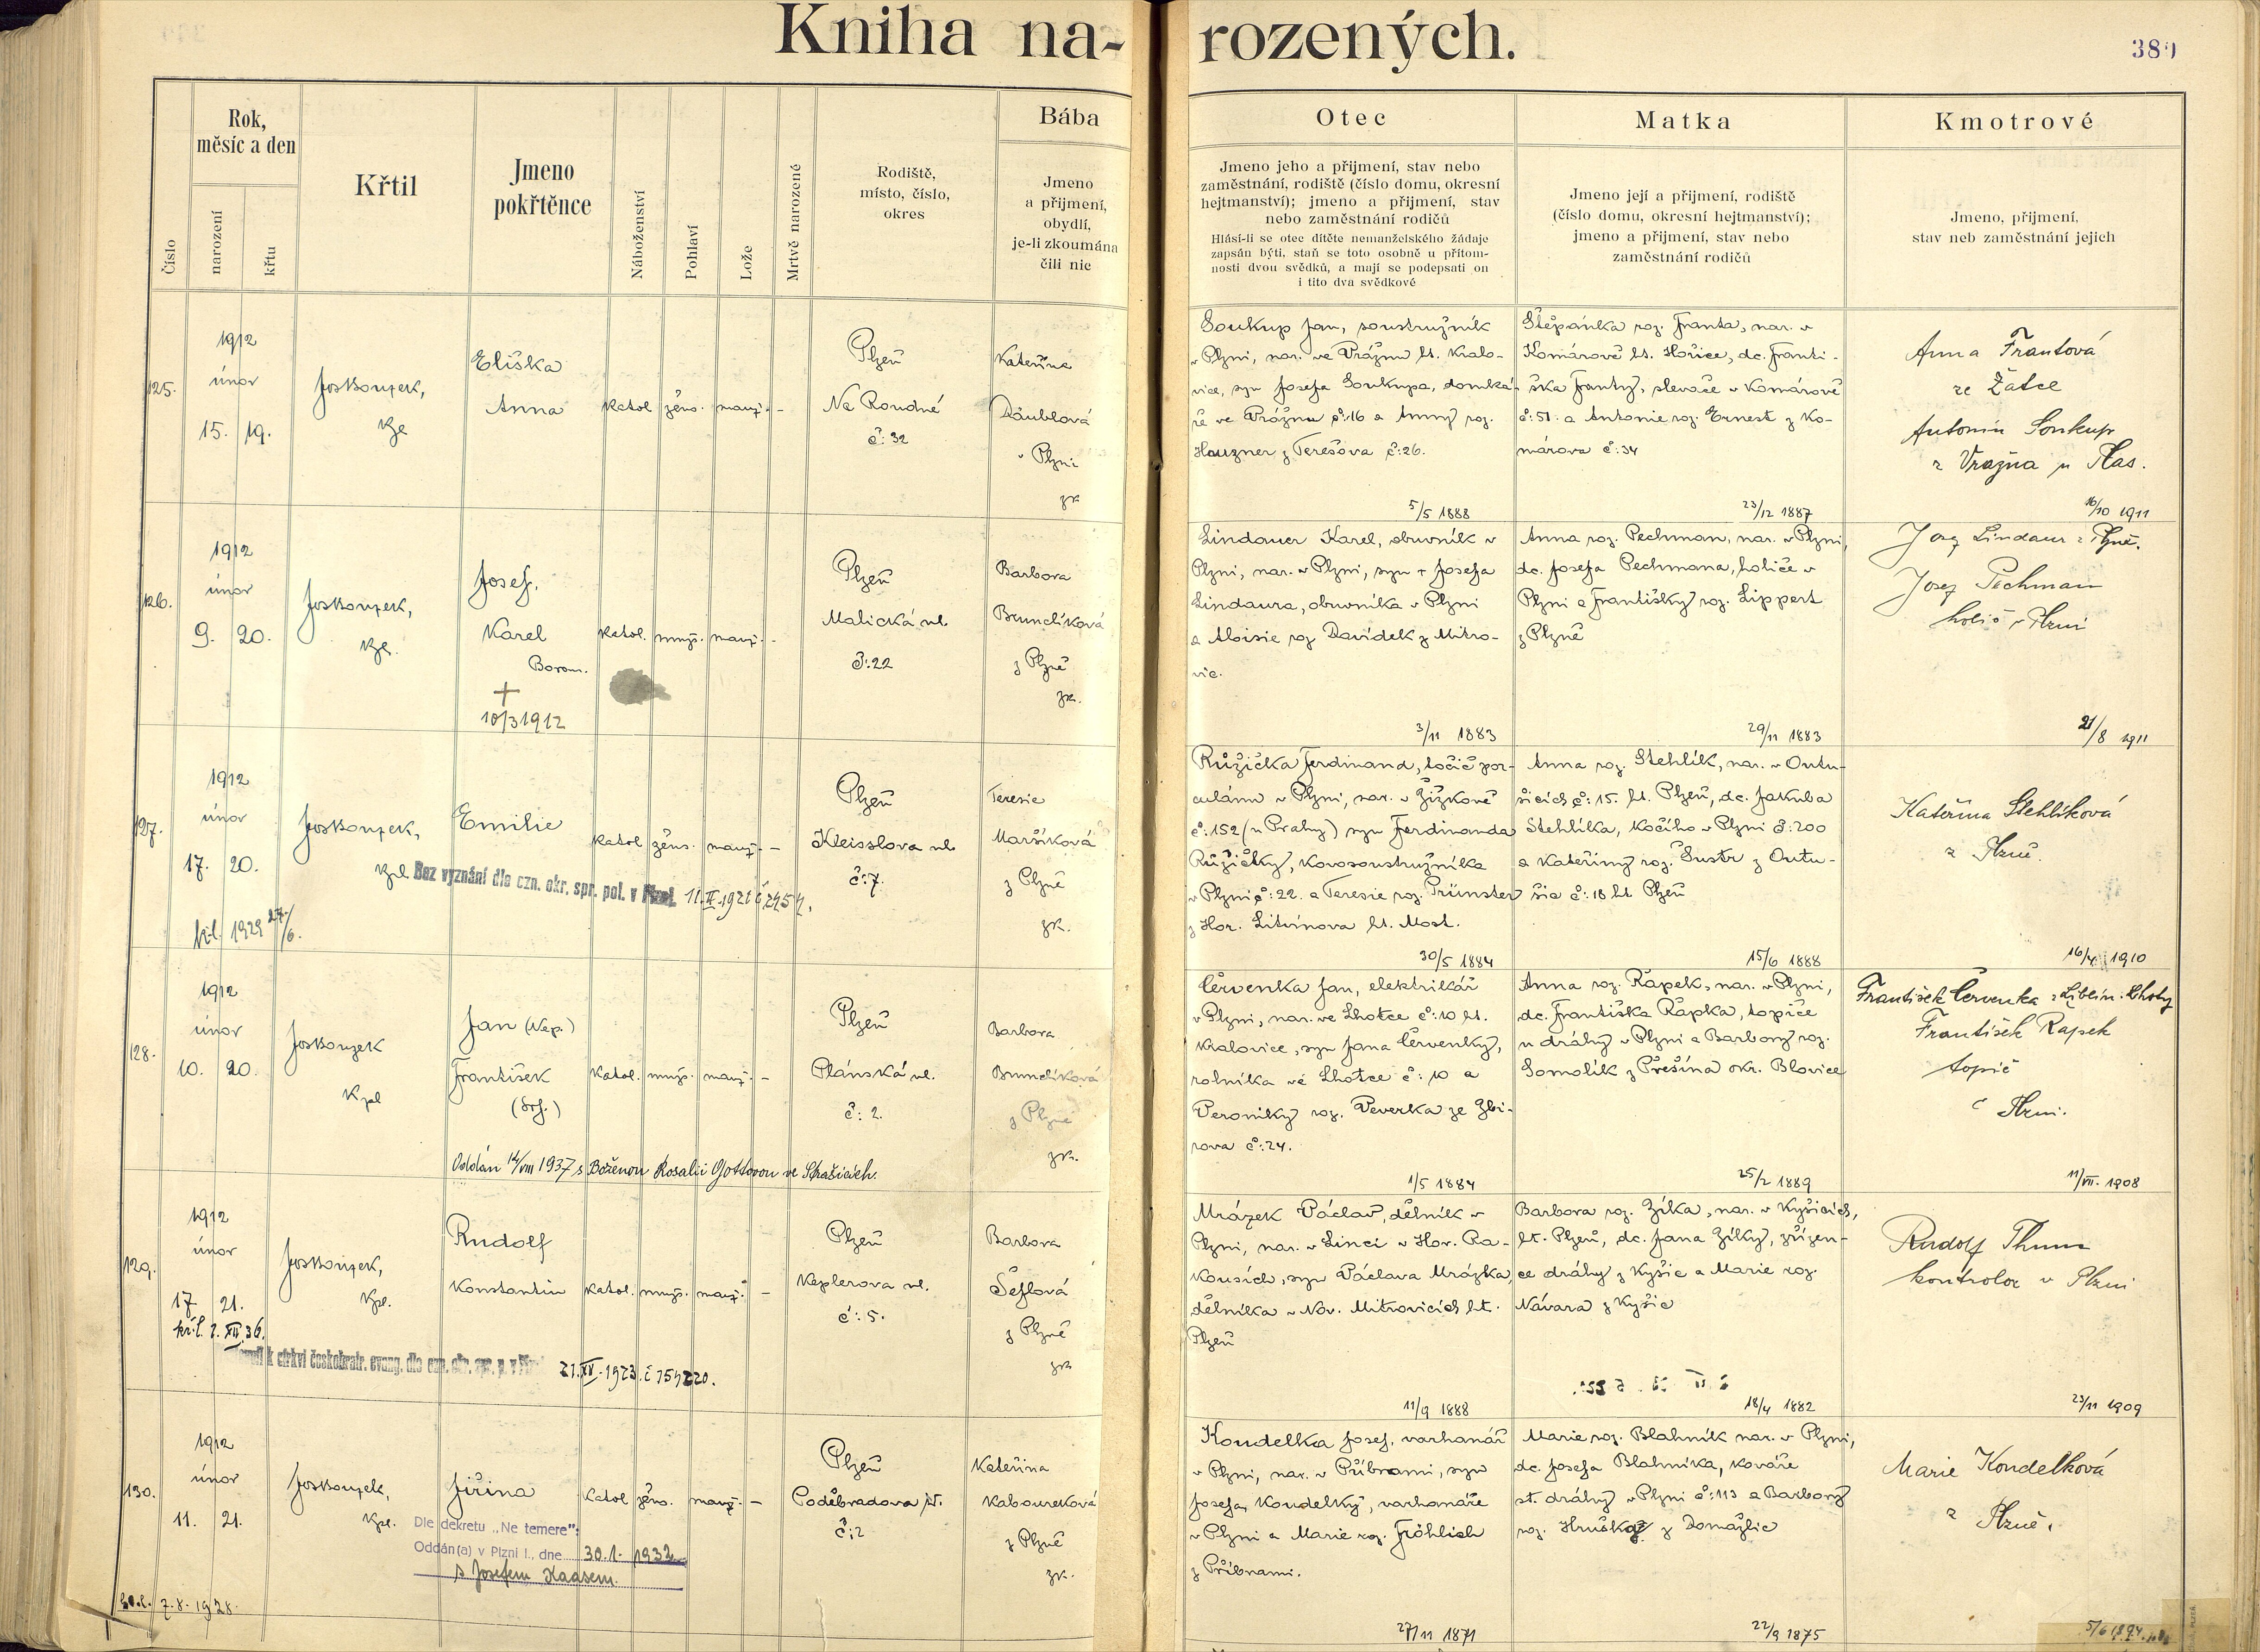 Kniha na-
rozených.
380
Číslo
Rok,
měsíc a den
narození
křtu
Křtil
Jmeno
pokřtěnce
Náboženství
Pohlaví
Lože
Mrtvě narozené
Rodiště,
místo, číslo,
okres
Bába
Jmeno
a přijmení,
obydlí,
je-li zkoumána
čili nic
Otec
Jmeno jeho a přijmení, stav nebo
zaměstnání, rodiště (číslo domu, okresní
hejtmanství); jmeno a přijmení, stav
nebo zaměstnání rodičů
Hlásí-li se otec dítěte nemanželského žádaje
zapsán býti, staň se toto osobně u přítom-
nosti dvou svědků, a mají se podepsati on
i tito dva svědkové
Matka
Jmeno její a přijmení, rodiště
(číslo domu, okresní hejtmanství);
jmeno a přijmení, stav nebo
zaměstnání rodičů
Kmotrové
Jmeno, přijmení,
stav neb zaměstnání jejich
125.
1912
únor
15. 19.
Eliška
Anna
katol. žens. manž. -
Plzeň
Na Roudné
č: 32
Kateřina
Däublová
v Plzni
zk.
Soukup Jan, soustružník
v Plzni, nar. ve Vrážnu ht. Kralo-
vice, syn Josefa Soukupa, domká-
ře ve Vrážnu č:16 a Anny roz.
Hauzner z Terešova č:26.
5/5 1888
Štěpánka roz. Franta, nar. v
Komárově ht. Hořice, dc. Franti-
ška Franty, slevače v Komárově
č:51. a Antonie roz. Ernest z Ko-
márova č:34
23/12 1887
Anna Frantová
ze Žatce
Antonín Soukup
z Vražna u Plas.
16/10 1911
126.
1912
únor
9. 20.
Josef,
Karel
Borom.
+
10/3 1912
katol. muž. manž. -
Plzeň
Malická ul.
č:22
Barbora
Brunclíková
z Plzně
zk.
Lindauer Karel, obuvník v
Plzni, nar. v Plzni, syn + Josefa
Lindaura, obuvníka v Plzni
a Aloisie roz. Davídek z Mitro-
vic.
3/11 1883
Anna roz. Pechman, nar. v Plzni,
dc. Josefa Pechmana, holiče v
Plzni a Františky roz. Lippert
z Plzně
29/11 1883
Josef Lindaur z Plzně.
Josef Pechman
holič v Plzni
21/8 1911
127.
1912
únor
17. 20.
kř.l. 1929 27/6.
Emilie
katol. žens. manž. -
Bez vyznání dle ozn. okr. spr. pol. v Plzni
Plzeň
Kleisslova ul.
č:7.
Teresie
Maršíková
z Plzně
zk.
Růžička Ferdinand, točič por-
culánu v Plzni, nar. v Žižkově
č:152 (u Prahy) syn Ferdinanda
Růžičky, kovosoustružníka
v Plzni č:22. a Teresie roz. Prünster
z Hor. Litvínova ht. Most.
30/5 1884
Anna roz. Stehlík, nar. v Outu-
šicích č:15. ht. Plzeň, dc. Jakuba
Stehlíka, kočího v Plzni č:200
a Kateřiny roz. Šustr z Outu-
šic č:18 ht Plzeň
15/6 1888
Kateřina Stehlíková
z Plzně.
16/4 1910
128.
1912
únor
10. 20.
Kpl
Jan (Nep.)
František
(Ser.)
katol. muž. manž. -
Plzeň
Plánská ul.
č: 2.
Barbora
Brunclíková
z Plzně
zk.
Oddán 14/VIII 1937 s Boženou Rosalií Gottovou ve Strašicích.
Červenka Jan, elektrikář
v Plzni, nar. ve Lhotce č:10 ht.
Kralovice, syn Jana Červenky,
rolníka ve Lhotce č:10 a
Veroniky roz. Veverka ze Zbi-
rova č:24.
1/5 1884
Anna roz. Řapek, nar. v Plzni,
dc. Františka Řapka, topiče
u dráhy v Plzni a Barbory roz.
Somolík z Přešína okr. Blovice
25/2 1889
František Červenka z Liblín. Lhoty
František Rapek
topič
v Plzni.
11/VII. 1908
129.
1912
únor
17 21.
kř.l. 2. XII 36.
Rudolf
Konstantin
katol. muž. manž. -
Plzeň
Keplerova ul.
č: 5.
Barbora
Šeflová
z Plzně
zk
Mrázek Václav, dělník v
Plzni, nar. v Linci v Hor. Ra-
kousích, syn Václava Mrázka,
dělníka v Nov. Mitrovicích ht.
Plzeň
11/9 1888
Barbora roz. Zíka, nar. v Kyšicích,
ht. Plzeň, dc. Jana Zíky, zřízen-
ce dráhy z Kyšic a Marie roz.
Návara z Kyšic
18/4 1882
Rudolf Thum
kontrolor v Plzni
23/11 1909
130.
1912
únor
11. 21.
7.8. 1928.
Kpl.
Jiřina
katol. žens. manž. -
Dle dekretu „Ne temere":
Oddán(a) v Plzni I., dne 30.1. 1932
s Josefem Kaasem.
Plzeň
Poděbradova
č:2
Kateřina
Kaboureková
z Plzně
zk.
Koudelka Josef, varhanář
v Plzni, nar. v Příbrami, syn
Josefa Koudelky, varhanáře
v Plzni a Marie roz. Fröhlich
z Příbrami.
27/11 1871
Marie roz. Blahník nar. v Plzni,
dc. Josefa Blahníka, kováře
st. dráhy v Plzni č:113 a Barbory
roz. Hruška z Domažlic
22/9 1875
Marie Koudelková
z Plzně.